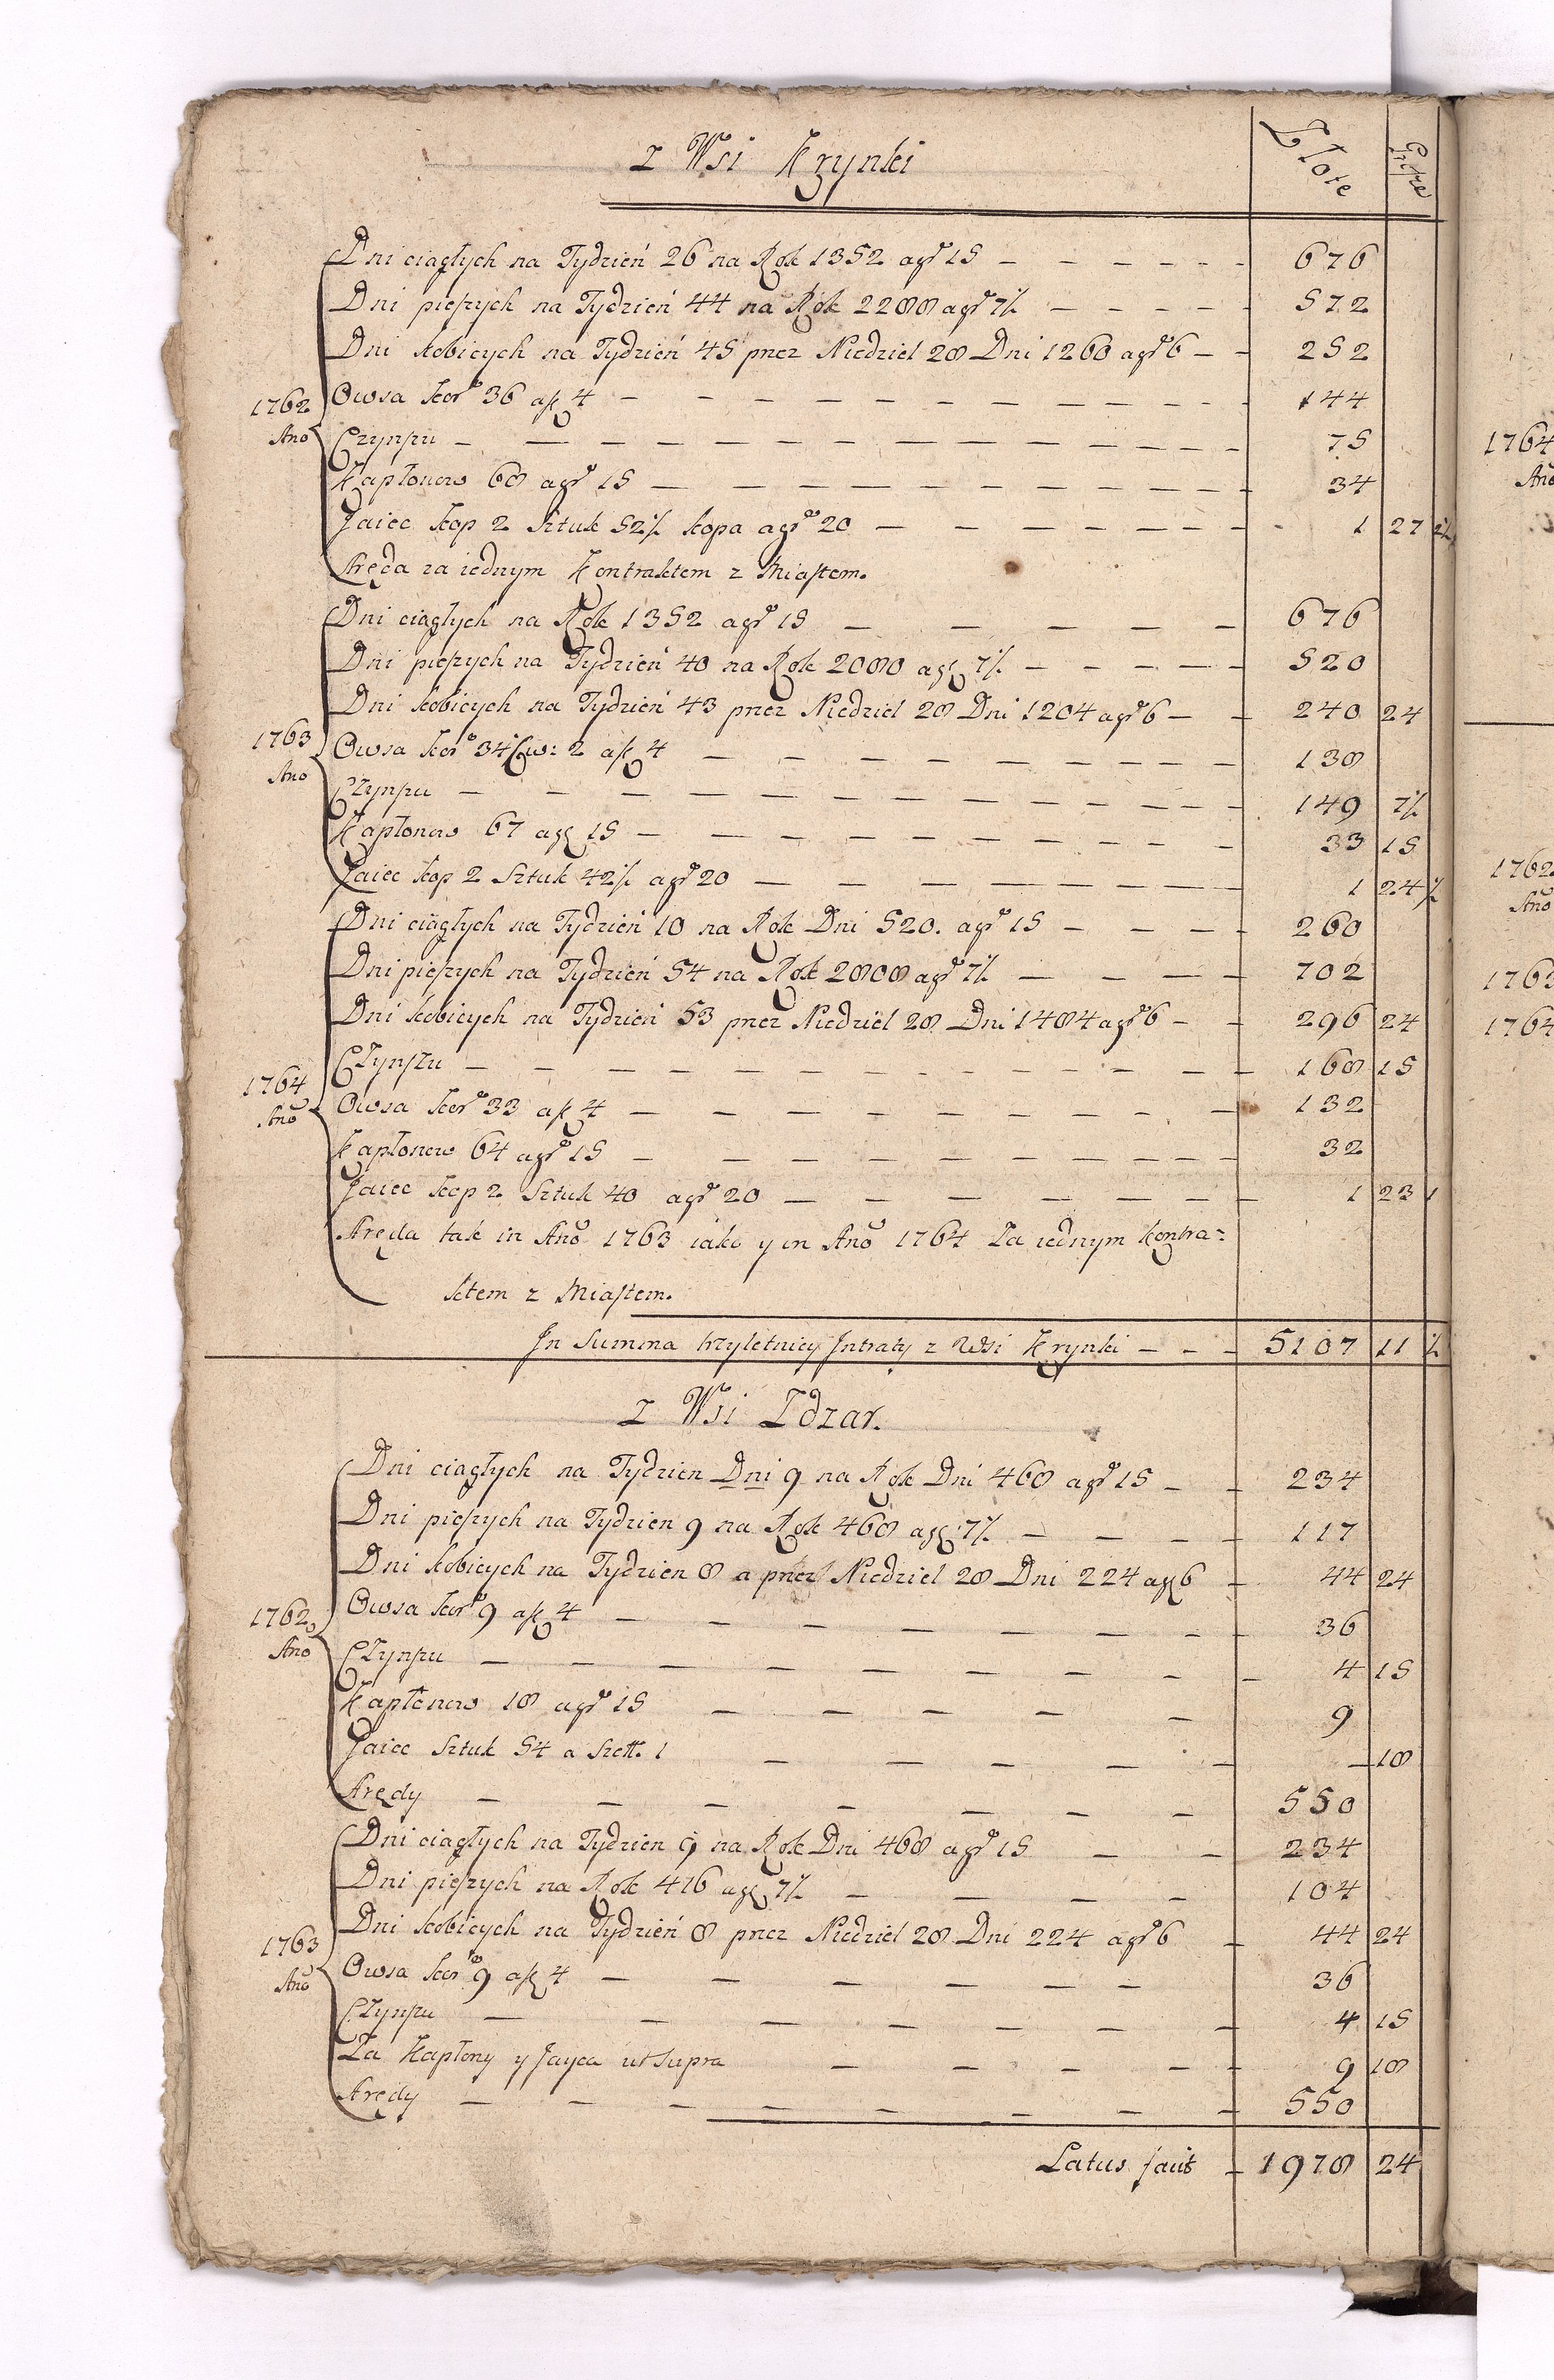 z Wsi Krynki
Złote
Grosze
Dni ciągłych na Tydzień 26 na Rok 1352 agr 15 — 676
Dni pieszych na Tydzień 44 na Rok 2288 agr 7½ — 572
Dni kobicych na Tydzień 45 przez Niedziel 28 Dni 1260 agr 6 — 252
1762 Owsa kor 36 af 4 — 144
Ano Czynszu — 75
Kapłonow 68 agr 15 — 34
Jaiec kop 2 Sztuk 52½ kopa agr 20 — 1 27 ½
Aręda za iednym Kontraktem z Miastem.
Dni ciągłych na Rok 1352 agr 15 — 676
Dni pieszych na Tydzień 40 na Rok 2080 agr 7½ — 520
Dni kobicych na Tydzień 43 przez Niedziel 28 Dni 1204 agr 6 — 240 24
1763 Owsa kor 34 Cw: 2 af 4 — 138
Ano Czynszu — 149 7½
Kapłonow 67 agr 15 — 33 15
Jaiec kop 2 Sztuk 42½ agr 20 — 1 24 ½
Dni ciągłych na Tydzień 10 na Rok Dni 520. agr 15 — 260
Dni pieszych na Tydzień 54 na Rok 2808 agr 7½ — 702
Dni kobicych na Tydzień 53 przez Niedziel 28 Dni 1484 agr 6 — 296 24
Czynszu — 168 15
1764 Owsa kor 33 af 4 — 132
Ano
Kapłonow 64 agr 15 — 32
Jaiec kop 2 Sztuk 40 agr 20 — 1 23 1
Aręda tak in Ano 1763 iako y in Ano 1764 Za iednym Kontra=
ktem z Miastem.
In Summa trzyletniey Intraty z Wsi Krynki — 5107 11 ½
z Wsi Zdzar.
Dni ciągłych na Tydzien Dni 9 na Rok Dni 468 agr 15 — 234
Dni pieszych na Tydzien 9 na Rok 468 agr 7½ — 117
Dni kobicych na Tydzien 8 a przez Niedziel 28 Dni 224 agr 6 — 44 24
1762 Owsa kor 9 af 4 — 36
Ano Czynszu — 4 15
Kapłonow 18 agr 15 — 9
Jaiec Sztuk 54 a Szelt. 1 — 18
Arędy — 550
Dni ciągłych na Tydzien 9 na Rok Dni 468 agr 15 — 234
Dni pieszych na Rok 416 agr 7½ — 104
Dni kobicych na Tydzień 8 przez Niedziel 28 Dni 224 agr 6 — 44 24
1763 Owsa kor 9 af 4 — 36
Ano
Czynszu — 4 15
Za Kapłony y Jayca ut Supra — 9 18
Arędy — 550
Latus facit — 1978 24
1764
Ano
1762
Ano
1763
1764